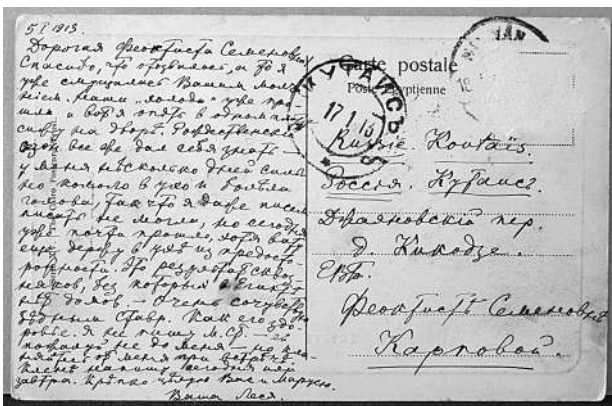 5 I 1913.
Дорогая Феоктиста Семеновна
Спасибо, что отозвались, а то я
уже смущалась Вашим молча-
ніем. Наши "холода" уже про-
шли и вот я опять в одном платье
сижу на дворѣ.
все же дал себя знать —
у меня нѣсколько дней сильно
кололо в ухо и болѣла
голова, так что я даже писем
писать не могла, но сегодня
уже почти прошло, хотя вату
еще держу в ухѣ из предосто-
рожности. Это результат сквоз-
няков, без которых в Египтѣ
нѣт домов. — Очень сочувствую
бѣдным Ставр. Как его здо-
ровье. Я не пишу М. —
пожалуй не до меня — но кла-
няйтесь от меня при встрѣчѣ.
напишу сегодня или
завтра. Крѣпко цѣлую Вас и Марусю.
Ваша Леся.
Carte postale
Poste Egyptienne
КУТАИСЪ
17 1 13
Russie. Koutaïs.
Россія. Кутаис.
Дворяновскій пер.
д. Кикодзе.
Феоктистѣ Семеновнѣ
Карповой.